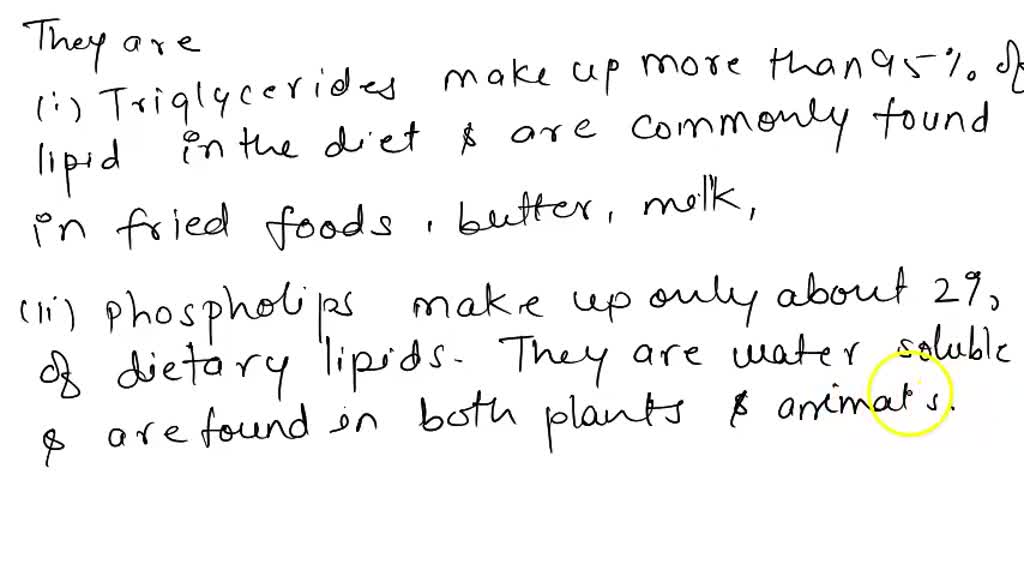 They are
(i) Triglycerides make up more than 95% of
lipid in the diet & are commonly found
in fried foods, butter, milk,
(ii) phospholips make up only about 2%
of dietary lipids. They are water soluble
& are found in both plants & animals.